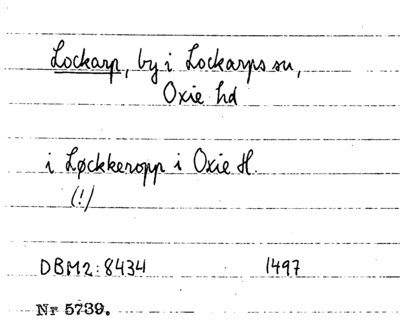 Lockarp, by i Lockarps sn,
Oxie hd
i Løckkeropp i Oxie H.
(!)
DBM2:8434 1497
Nr 5739.